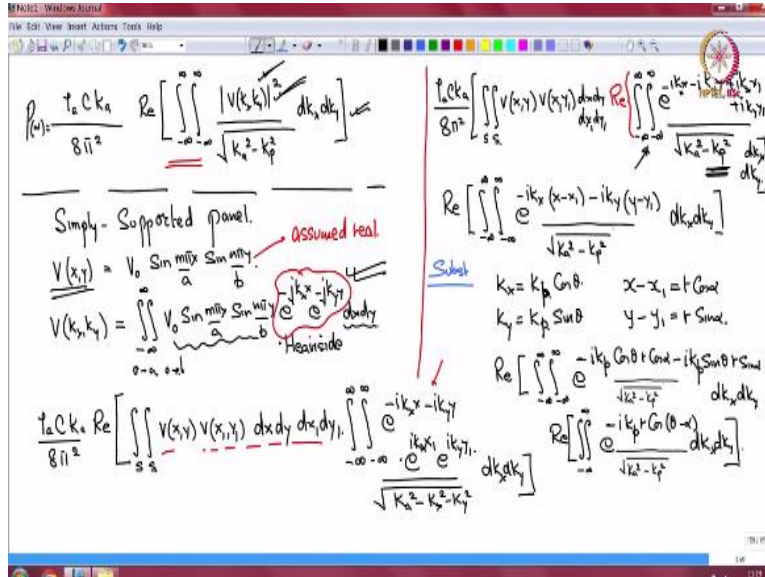 Note2 - Windows Journal
File Edit View Insert Actions Tools Help
P(w) = ρₐ C kₐ / 8π² Re [ ∫_{-∞}^{∞} ∫_{-∞}^{∞} |V(kₓ,kᵧ)|² / √(kₐ² - kₚ²) dkₓ dkᵧ ]
Simply-Supported panel.
V(x,y) = V₀ Sin mπx/a Sin nπy/b. assumed real.
V(kₓ,kᵧ) = ∫∫_{-∞}^{∞} V₀ Sin mπx/a Sin nπy/b e^{-jkₓx} e^{-jkᵧy} dxdy
0-a 0-b Heaviside
ρₐ C kₐ / 8π² Re [ ∫_S ∫_S v(x,y) v(x₁,y₁) dx dy dx₁ dy₁. ∫_{-∞}^{∞} ∫_{-∞}^{∞} e^{-ikₓx - ikᵧy} · e^{ikₓx₁} e^{ikᵧy₁} / √(kₐ² - kₓ² - kᵧ²) dkₓ dkᵧ ]
ρₐ C kₐ / 8π² [ ∫_S ∫_S v(x,y) v(x₁,y₁) dxdy dx₁dy₁ Re { ∫_{-∞}^{∞} ∫_{-∞}^{∞} e^{-ikₓx - ikᵧy + ikₓx₁ + ikᵧy₁} / √(kₐ² - kₚ²) dkₓ dkᵧ
Re [ ∫_{-∞}^{∞} ∫_{-∞}^{∞} e^{-ikₓ(x-x₁) - ikᵧ(y-y₁)} / √(kₐ² - kₚ²) dkₓ dkᵧ ]
Subst
kₓ = kₚ Cosθ x - x₁ = r Cosα
kᵧ = kₚ Sinθ y - y₁ = r Sinα.
Re [ ∫_{-∞}^{∞} ∫_{-∞}^{∞} e^{-ikₚ Cosθ r Cosα - ikₚ Sinθ r Sinα} / √(kₐ² - kₚ²) dkₓ dkᵧ
Re [ ∫∫_{-∞}^{∞} e^{-ikₚ r Cos(θ-α)} / √(kₐ² - kₚ²) dkₓ dkᵧ ].